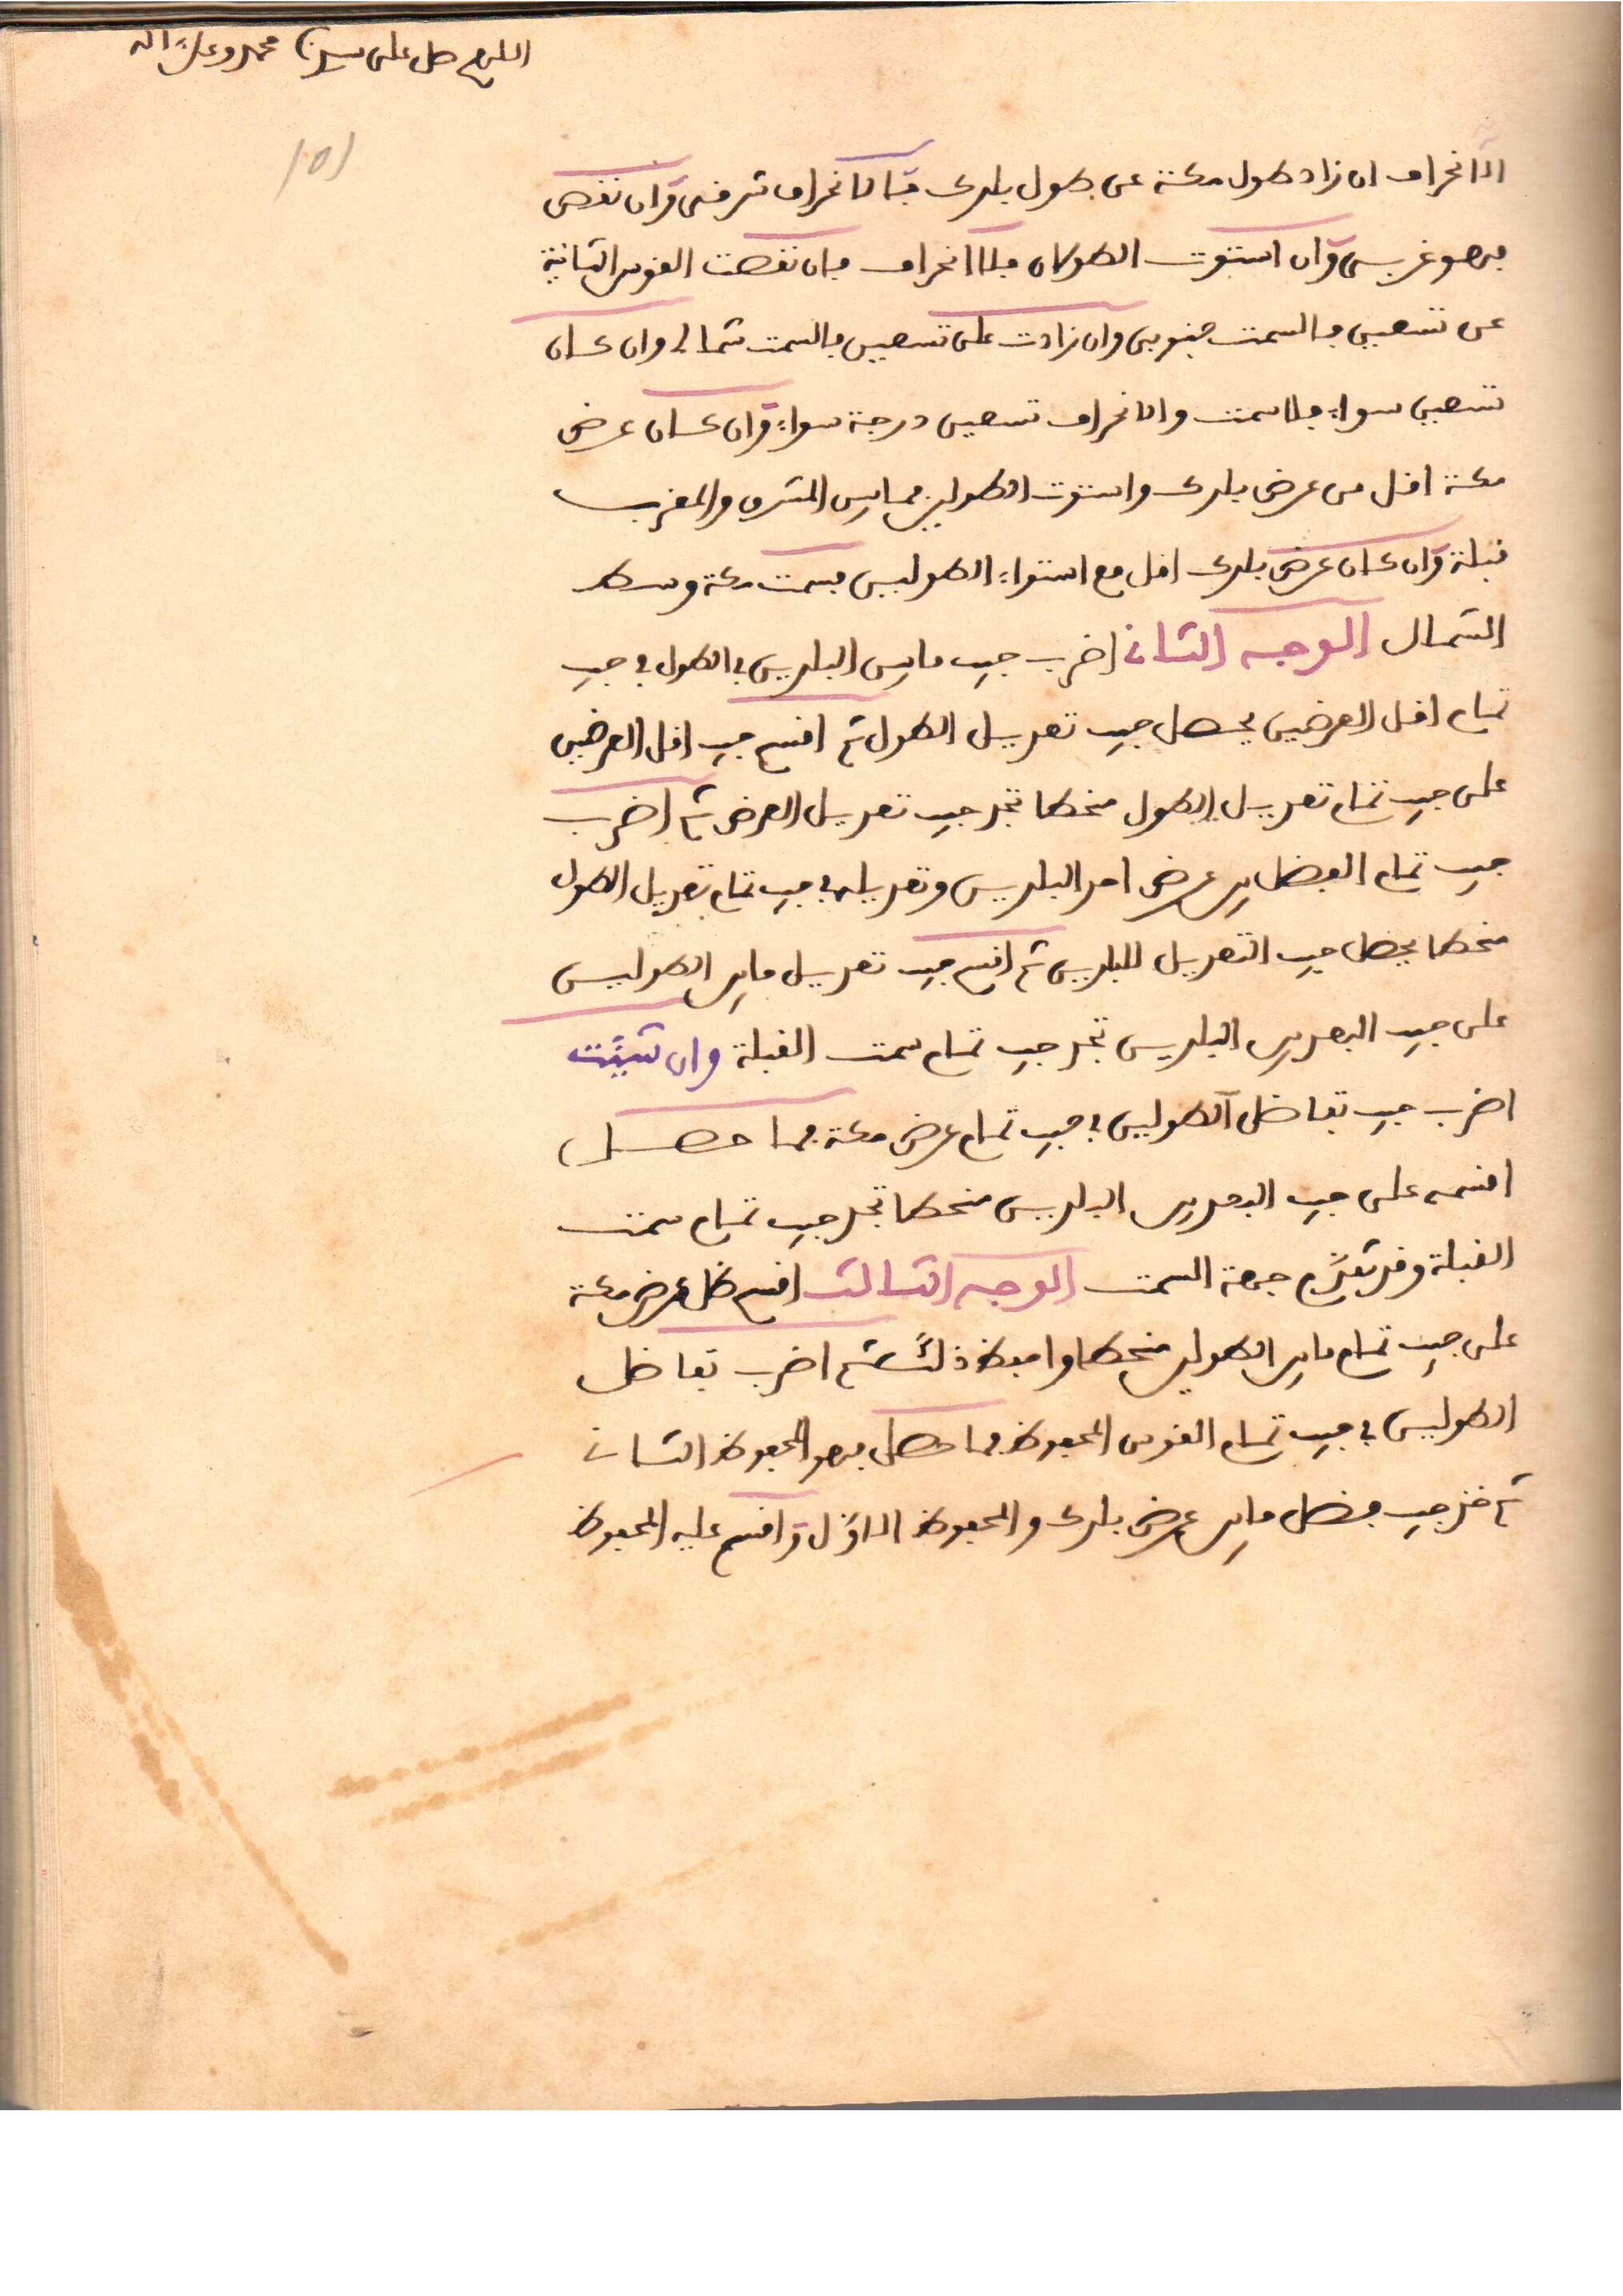 اللهم صل على سيدنا محمد وعلى اله
151
الانحراف ان زاد طول مكة عن طول بلدك فالانحراف شرقي وان نقص
فهو غربي وان استوت الطولان فلا انحراف فان نقصت القوس الثانية
عن تسعين فالسمت جنوبي وان زادت على تسعين فالسمت شمالي وان كان
تسعين سواء فلا سمت والانحراف تسعين درجة سواء وان كان عرض
مكة اقل من عرض بلدك واستوت الطولين فما بين المشرق والمغرب
قبلة وان كان عرض بلدك اقل مع استواء الطولين فسمت مكة وسط
الشمال الوجه الثاني اضرب جيب ما بين البلدين في الطول في جيب
تمام اقل العرضين يحصل جيب تعديل الطول ثم اقسم جيب اقل العرضين
على جيب تمام تعديل الطول منحطا تجد جيب تعديل العرض ثم اضرب
جيب تمام الفضل بين عرض احد البلدين وتعديله في جيب تمام تعديل الطول
منحطا يحصل جيب التعديل للبلدين ثم اقسم جيب تعديل ما بين الطولين
على جيب البعد بين البلدين تجد جيب تمام سمت القبلة وان شئت
اضرب جيب تفاضل الطولين في جيب تمام عرض مكة فما حصل
اقسمه على جيب البعد بين البلدين منحطا تجد جيب تمام سمت
القبلة وقد تقدم جهة السمت الوجه الثالث اقسم ظل عرض مكة
على جيب تمام ما بين الطولين منحطا واحفظ ذلك ثم اضرب تفاضل
الطولين في جيب تمام القوس المحفوظ فما حصل فهو المحفوظ الثاني
ثم خذ جيب فضل ما بين عرض بلدك والمحفوظ الاول واقسم عليه المحفوظ